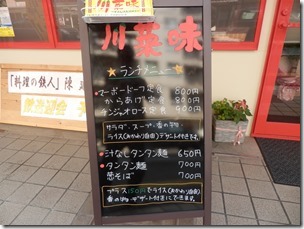 川菜味
ランチメニュー
マーボードーフ定食 800円
からあげ定食 800円
チンジャオロース定食 900円
サラダ・スープ・香の物
ライス(おかわり自由)デザート付きです。
汁なしタンタン麺 650円
タンタン麺 700円
葱そば 700円
プラス150円でライス(おかわり自由)
香の物・デザート付きにできます。
「料理の鉄人」陳